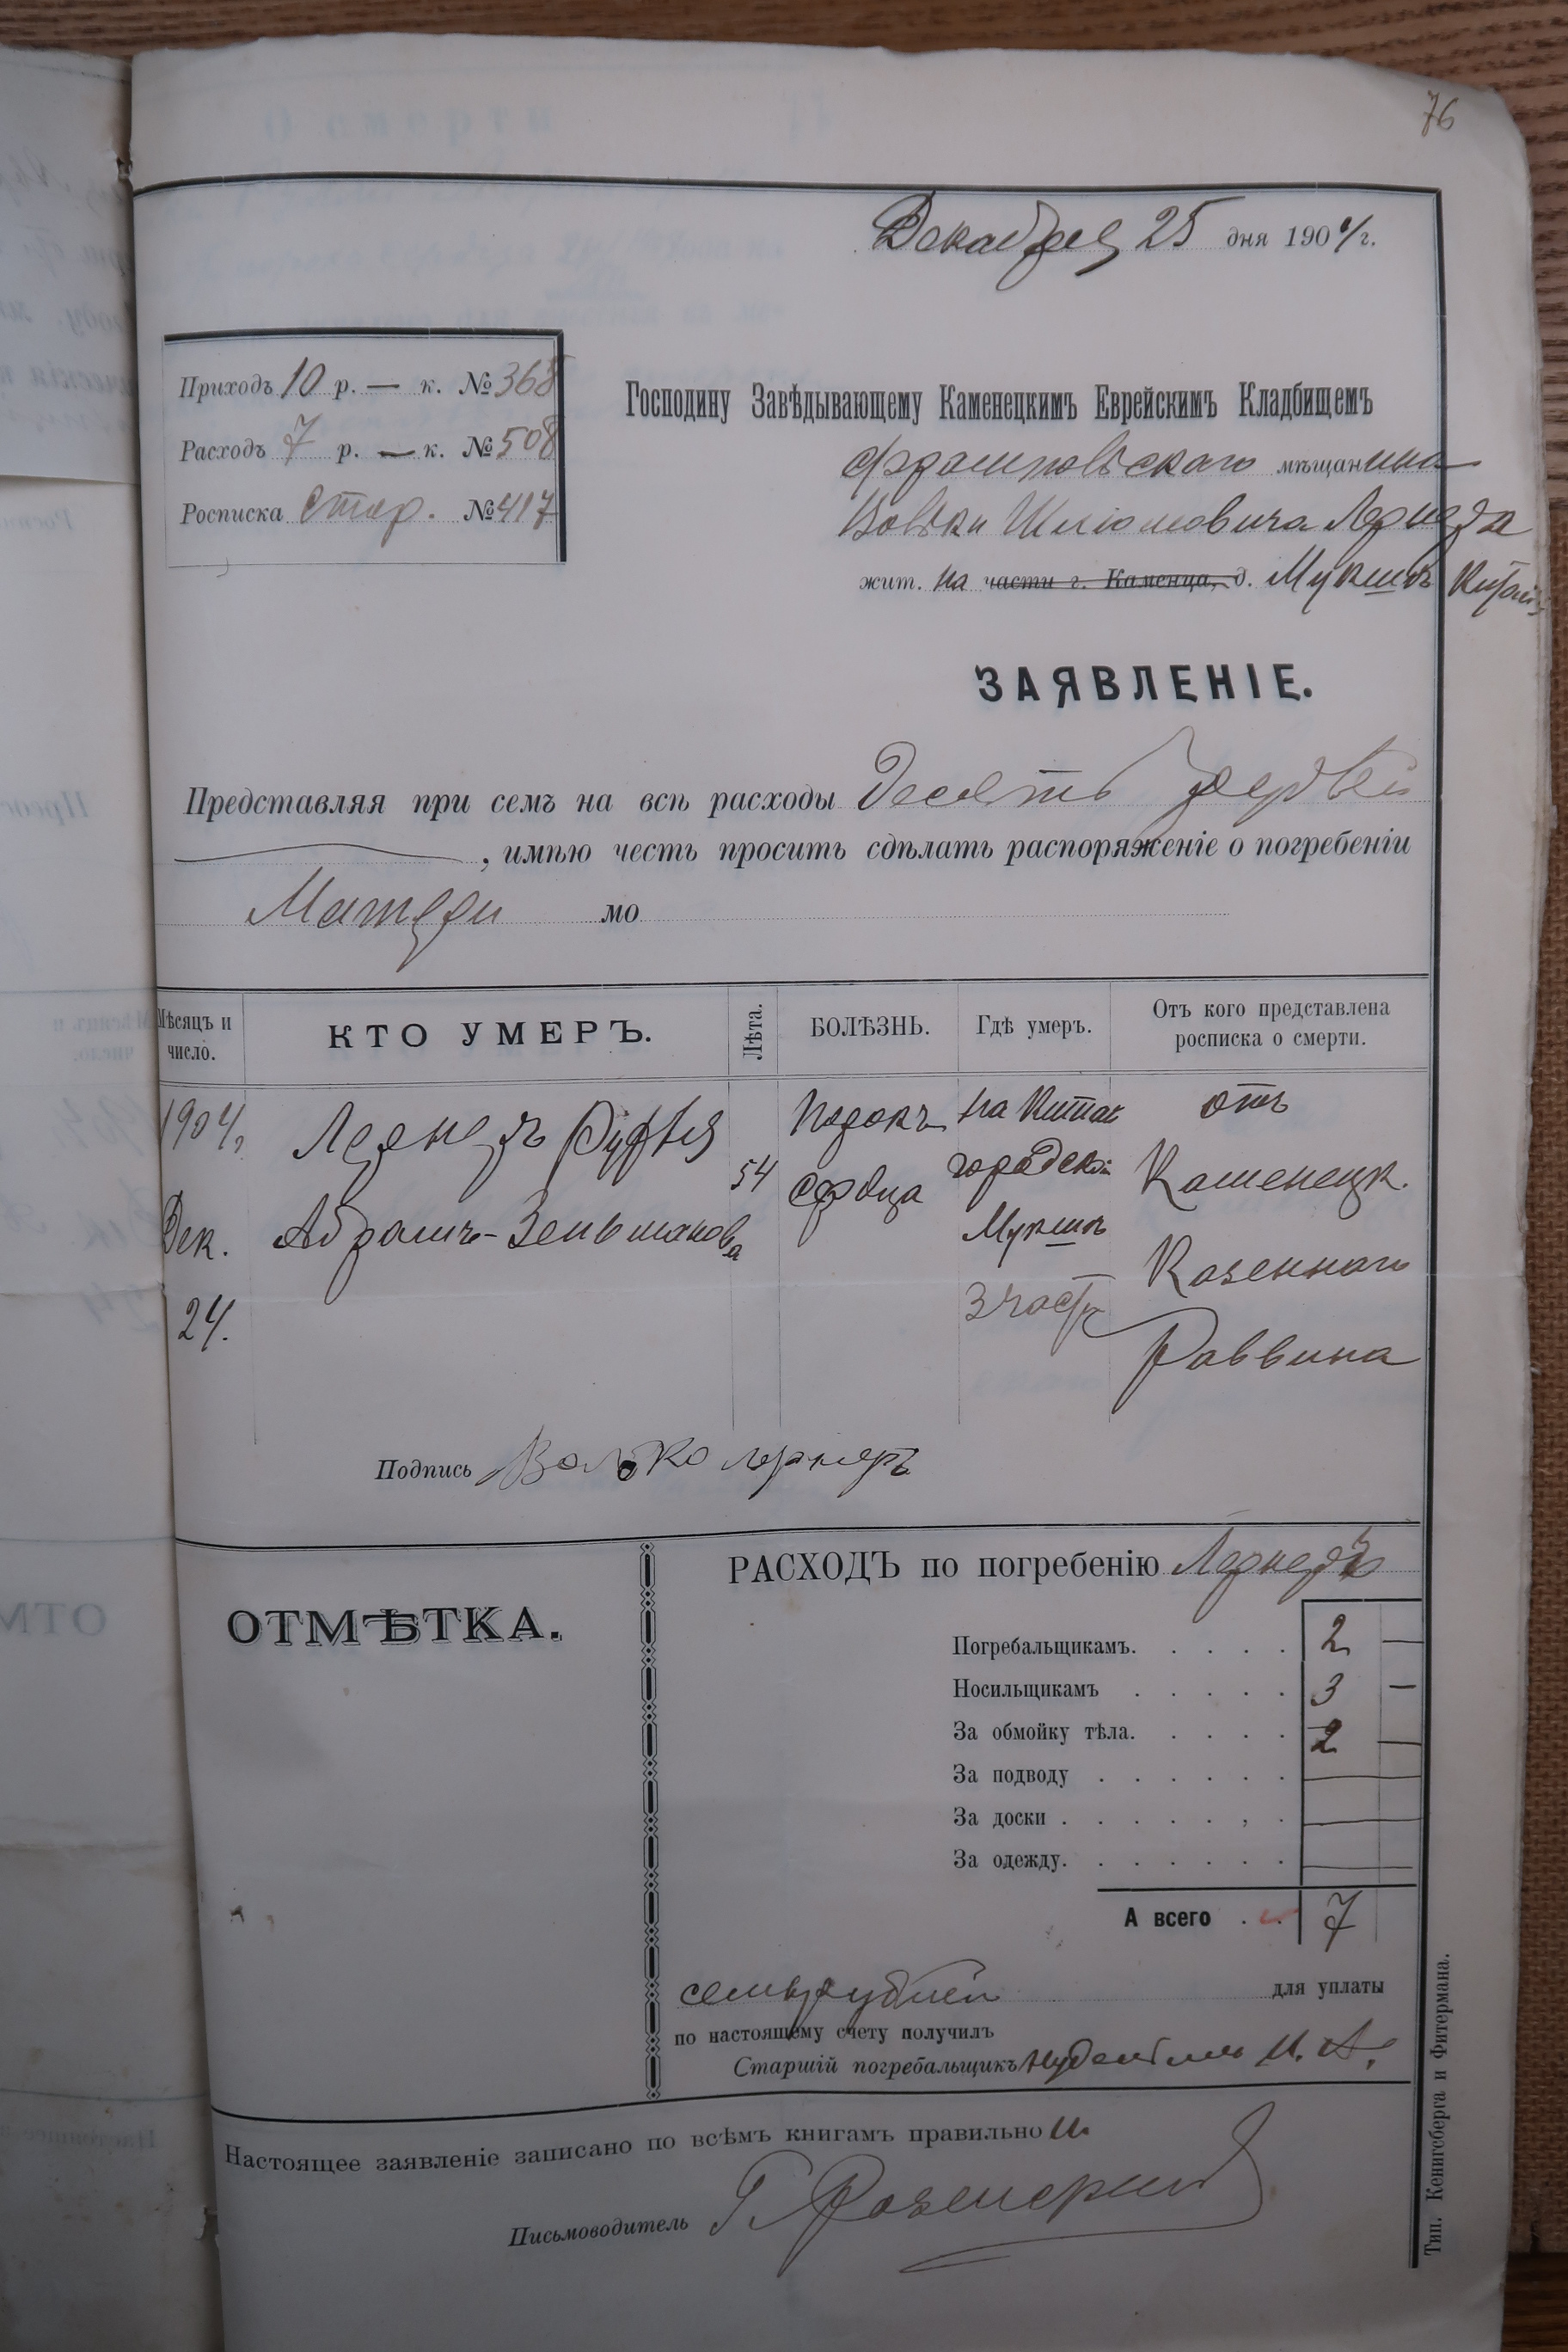 76
Декабря 25 дня 1904 г.
Приходъ 10 р. — к. № 368
Расходъ 7 р. — к. № 508
Росписка Стар. № 417
Господину Завѣдывающему Каменецкимъ Еврейскимъ Кладбищемъ
мѣщанина
Шліомовича Лернера
жит. на части г. Каменца, д. Мукшѣ
ЗАЯВЛЕНІЕ.
Представляя при семъ на всѣ расходы Десять рублей
, имѣю честь просить сдѣлать распоряженіе о погребеніи
Матери мо
Мѣсяцъ и число.
КТО УМЕРЪ.
Лѣта.
БОЛѢЗНЬ.
Гдѣ умеръ.
Отъ кого представлена росписка о смерти.
1904,
Дек.
24.
Лернеръ
Абрамъ-Зельманова
54
Порокъ
сердца
на
городской
Мукшѣ
3 част.
отъ
Каменецк.
Казеннаго
Раввина
Подпись Волько лернеръ
ОТМѢТКА.
РАСХОДЪ по погребенію Лернеръ
Погребальщикамъ. . . . . 2 —
Носильщикамъ . . . . . 3 —
За обмойку тѣла. . . . . 2 —
За подводу . . . . . . —
За доски . . . . . , . —
За одежду. . . . . . . —
А всего . . 7
семь рублей для уплаты
по настоящему счету получилъ
Старшій погребальщикъ Нудельманъ
Настоящее заявленіе записано по всѣмъ книгамъ правильно и.
Письмоводитель
Тип. Кенигсберга и Фитермана.